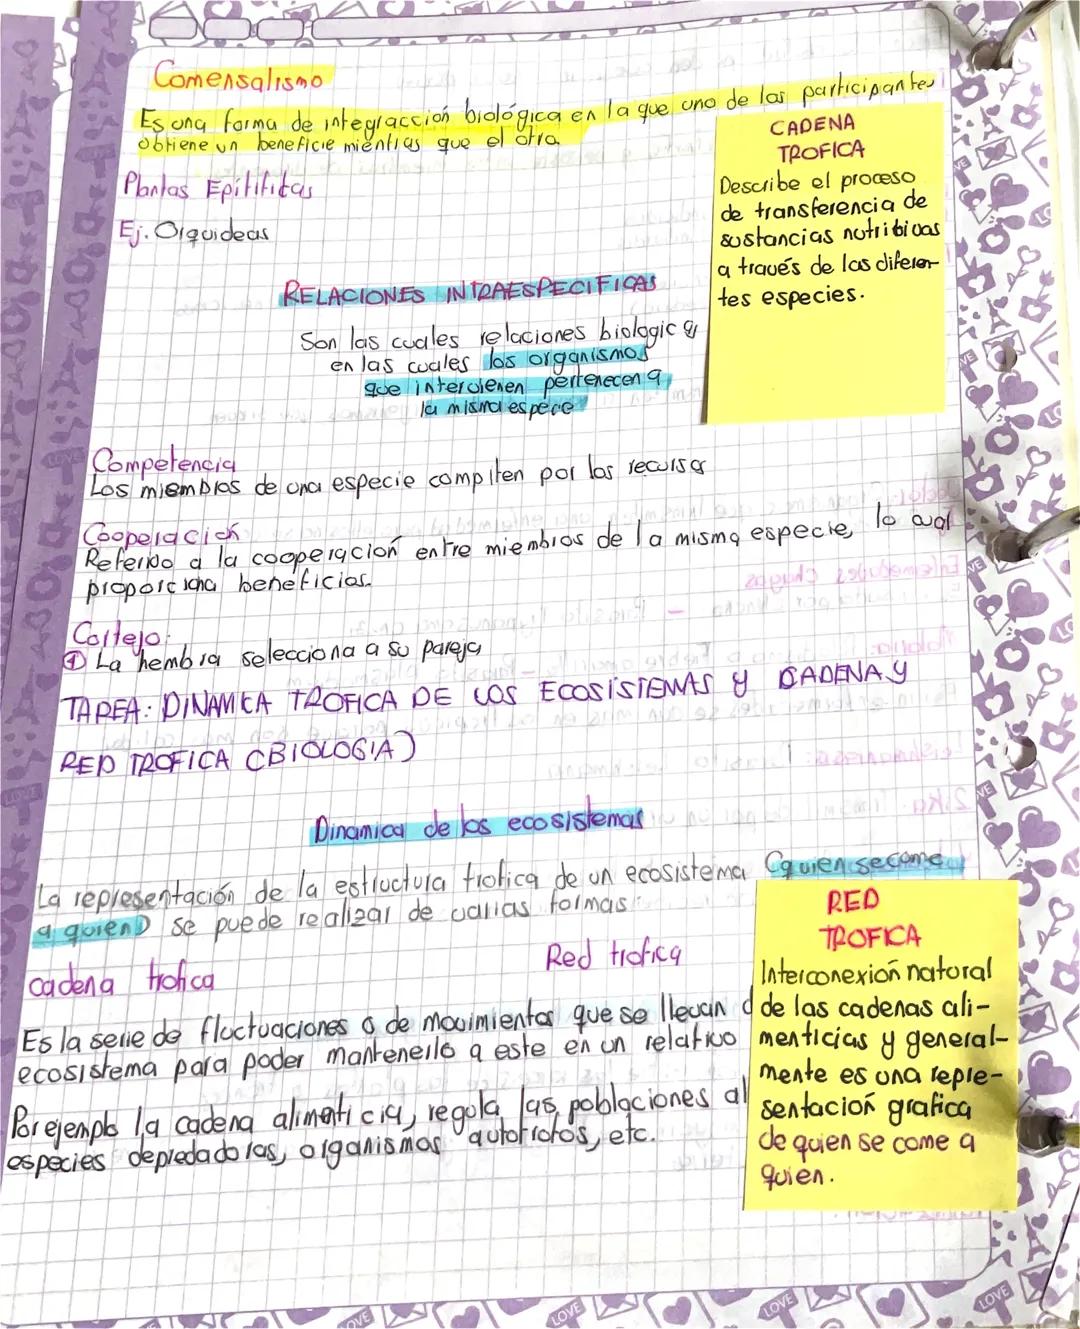 Comensalismo
Es una forma de integracción biológica en la que uno de los participantes
obtiene un beneficie mientras que el otro
Plantas Epitifitas
Ej. Orquideas
CADENA
TROFICA
Describe el proceso
de transferencia de
sustancias notribivas
a través de las diferen-
tes especies.
RELACIONES INTRAESPECIFICAS
Son las cuales relaciones biologica
en las cuales los organismos
que intervienen pertenecen a
la misma espece
Competencia
Los miembros de una especie compiten por los recursos
Cooperacion
Referido a la cooperacion entre miembros de la misma especie, lo cual
proporciona beneficios.
Cortejo:
① La hembra selecciona a su pareja
TAREA: DINAMICA TROFICA DE LOS ECOSISTEMAS Y CADENA Y
RED TROFICA (BIOLOGIA)
Dinamica de los ecosistemas
La representación de la estructura trofica de un ecosistema (quien se come
a quien) se puede realizar de varias formas:
cadena trofica
Red trofica
Es la serie de fluctuaciones o de movimientos que se llevan
ecosistema para poder mantenerlo a este en un relativo
Por ejemplo la cadena alimenticia, regula las poblaciones al
especies depredadoras, organismos autotrofos, etc.
RED
TROFICA
Interconexión natural
de las cadenas ali-
menticias y general-
mente es una repre-
sentación grafica
de quien se come a
quien.
LOVE
LOVE
LOVE
LOVE